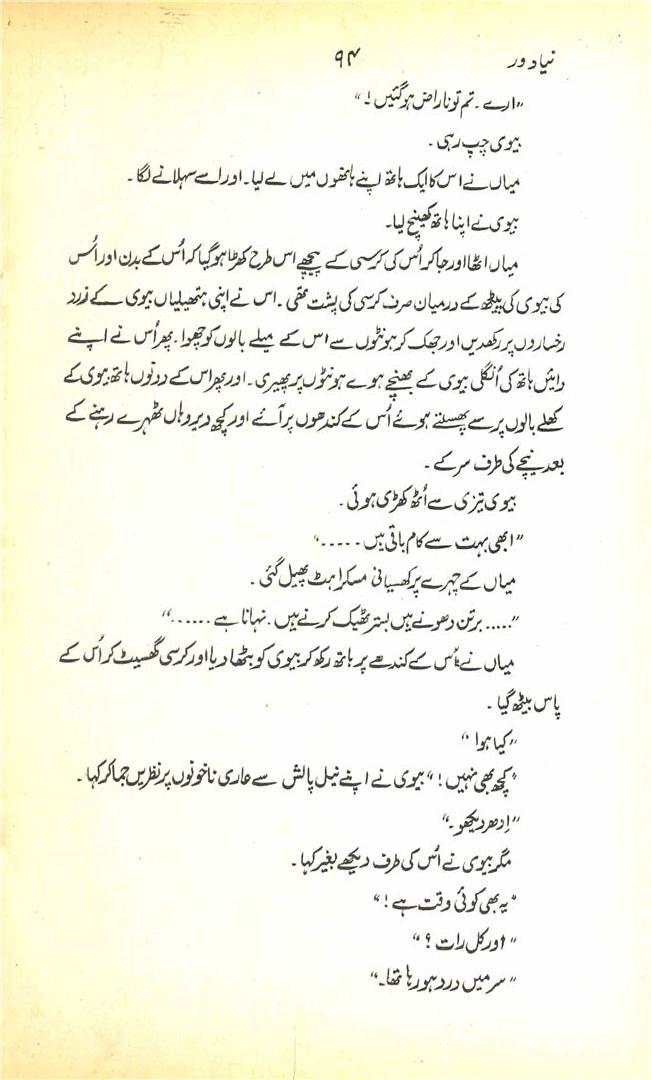 نیا دور ۹۴
"ارے۔ تم تو ناراض ہو گئیں!"
بیوی چپ رہی۔
میاں نے اس کا ایک ہاتھ اپنے ہاتھوں میں لے لیا۔ اور اسے سہلانے لگا۔
بیوی نے اپنا ہاتھ کھینچ لیا۔
میاں اٹھا اور جا کر اُس کی کرسی کے پیچھے اس طرح کھڑا ہو گیا کہ اُس کے بدن اور اُس
کی بیوی کی پیٹھ کے درمیان صرف کرسی کی پشت تھی۔ اس نے اپنی ہتھیلیاں بیوی کے زرد
رخساروں پر رکھدیں اور جھک کر ہونٹوں سے اس کے میلے بالوں کو چھوا۔ پھر اُس نے اپنے
دائیں ہاتھ کی اُنگلی بیوی کے بھنچے ہوے ہونٹوں پر پھیری۔ اور پھر اس کے دونوں ہاتھ بیوی کے
کھلے بالوں پر سے پھسلتے ہوئے اُس کے کندھوں پر آئے اور کچھ دیر وہاں ٹھہرے رہنے کے
بعد نیچے کی طرف سرکے۔
بیوی تیزی سے اُٹھ کھڑی ہوئی۔
"ابھی بہت سے کام باقی ہیں ....."
میاں کے چہرے پر کھسیانی مسکراہٹ پھیل گئی۔
"..... برتن دھونے ہیں بستر ٹھیک کرنے ہیں۔ نہانا ہے ......"
میاں نے اُس کے کندھے پر ہاتھ رکھ کر بیوی کو بٹھا دیا اور کرسی گھسیٹ کر اُس کے
پاس بیٹھ گیا۔
"کیا ہوا"
"کچھ بھی نہیں!" بیوی نے اپنے نیل پالش سے عاری ناخونوں پر نظریں جما کر کہا۔
"اِدھر دیکھو۔"
مگر بیوی نے اُس کی طرف دیکھے بغیر کہا۔
"یہ بھی کوئی وقت ہے!"
"اور کل رات؟"
"سر میں درد ہو رہا تھا۔"